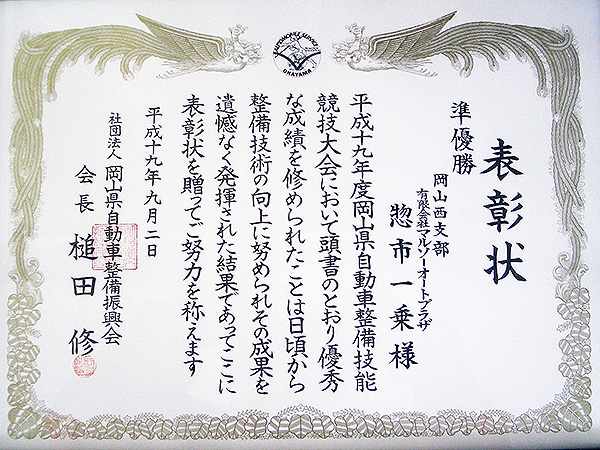 表彰状
準優勝
岡山西支部
有限会社マルソーオートプラザ
惣市一乗様
平成十九年度岡山県自動車整備技能
競技大会において頭書のとおり優秀
な成績を修められたことは日頃から
整備技術の向上に努められその成果を
遺憾なく発揮された結果であってここに
表彰状を贈ってご努力を称えます
平成十九年九月二日
社団法人 岡山県自動車整備振興会
会長 槌田修
OKAYAMA